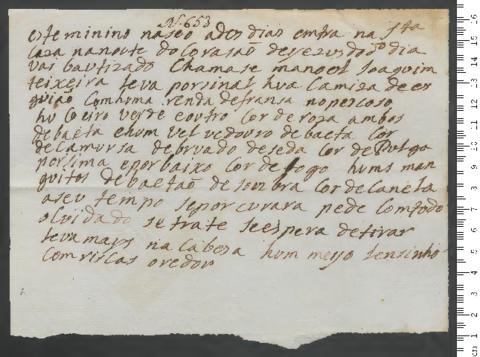 Nº 653
este minino naseo a dous dias emtra na S.ta
caza na noute do Corasaõ de jezus do dia
vas bautizado Chamase manoel Joaquim
teixeira leva por sinal hua Camiza de es
guiaõ Com huma renda de fransa no pescoso
hu Coeiro verde e outro Cor de roza ambos
de baeta e hum vel vedouro de baeta Cor
de Camursa debruado de seda Cor de Pulga
por sima e por baixo Cor de fogo huns man
guitos de baetaõ de sombra Cor de Canela
a seu tempo se porcurara pede Com todo
olvidado se trate se espera de tirar
leva mays na Cabesa hum meyo lensinho
Com riscas o redor